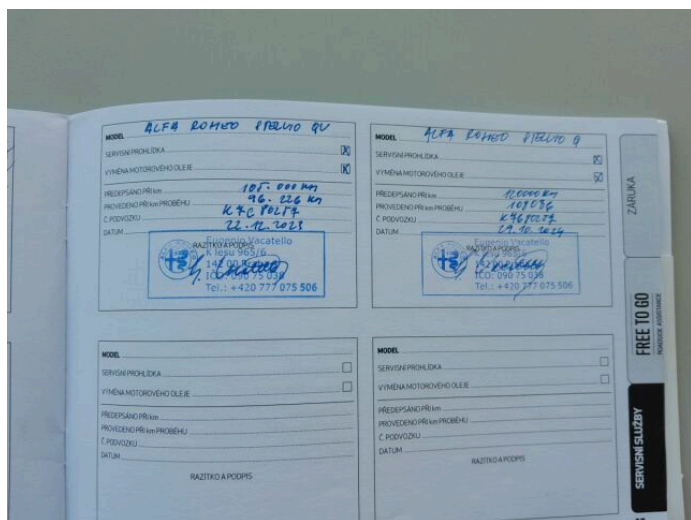 MODEL ALFA ROMEO STELVIO QV
SERVISNÍ PROHLÍDKA X
VÝMĚNA MOTOROVÉHO OLEJE X
PŘEDEPSÁNO PŘI km 105.000 KM
PROVEDENO PŘI km PROBĚHU 96.226 KM
Č. PODVOZKU K7C80257
DATUM 22.12.2023
RAZÍTKO A PODPIS
Eugenio Vacatello
K lesu 965/6
142 00
IČO: 090 75 038
Tel.: +420 777 075 506
MODEL ALFA ROMEO STELVIO Q
SERVISNÍ PROHLÍDKA X
VÝMĚNA MOTOROVÉHO OLEJE X
PŘEDEPSÁNO PŘI km 120000 KM
PROVEDENO PŘI km PROBĚHU 109036
Č. PODVOZKU
DATUM 29.10.2024
RAZÍTKO A PODPIS
Eugenio Vacatello
K lesu 965/6
142 00
IČO: 090 75 038
Tel.: +420 777 075 506
MODEL
SERVISNÍ PROHLÍDKA
VÝMĚNA MOTOROVÉHO OLEJE
PŘEDEPSÁNO PŘI km
PROVEDENO PŘI km PROBĚHU
Č. PODVOZKU
DATUM
RAZÍTKO A PODPIS
MODEL
SERVISNÍ PROHLÍDKA
VÝMĚNA MOTOROVÉHO OLEJE
PŘEDEPSÁNO PŘI km
PROVEDENO PŘI km PROBĚHU
Č. PODVOZKU
DATUM
RAZÍTKO A PODPIS
ZÁRUKA
FREE TO GO
ROADSIDE ASSISTANCE
SERVISNÍ SLUŽBY